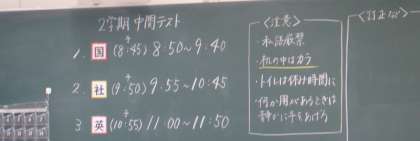 2学期 中間テスト
1. 国 (8:45) 8:50~9:40
2. 社 (9:50) 9:55~10:45
3 英 (10:55) 11:00~11:50
<注意>
・私語厳禁
・机の中はカラ
・トイレは休み時間に
・何か用があるときは
静かに手をあげる